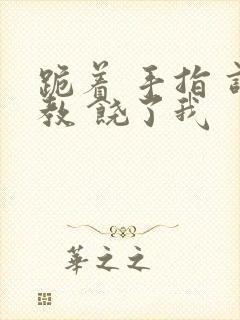 跪着 手指
教 饶了我
華之之